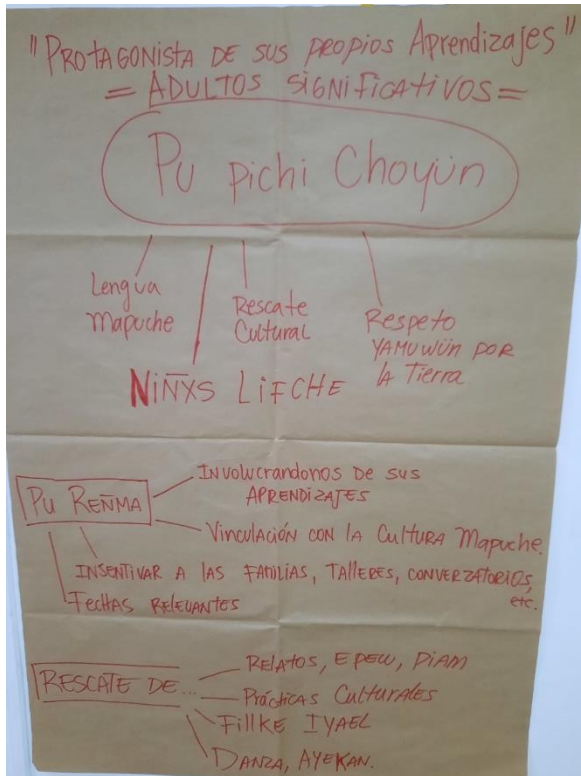 "PROTAGONISTA DE SUS PROPIOS Aprendizajes"
= ADULTOS SIGNIFICATIVOS =
Pu pichi Choyün
Lengua
Mapuche
Rescate
Cultural
Respeto
YAMUWÜN POR
la Tierra
NIÑXS LIFCHE
PU REÑMA
INVOLUCRANDONOS DE SUS
APRENDIZAJES
Vinculación CON LA CULTURA Mapuche.
INSENTIVAR A LAS FAMILIAS, TALLERES, CONVERZATORIOS,
etc.
FECHAS RELEVANTES
RESCATE DE...
RELATOS, EPEW, PIAM
Prácticas Culturales
FILLKE IYAEL
DANZA, AYEKAN.